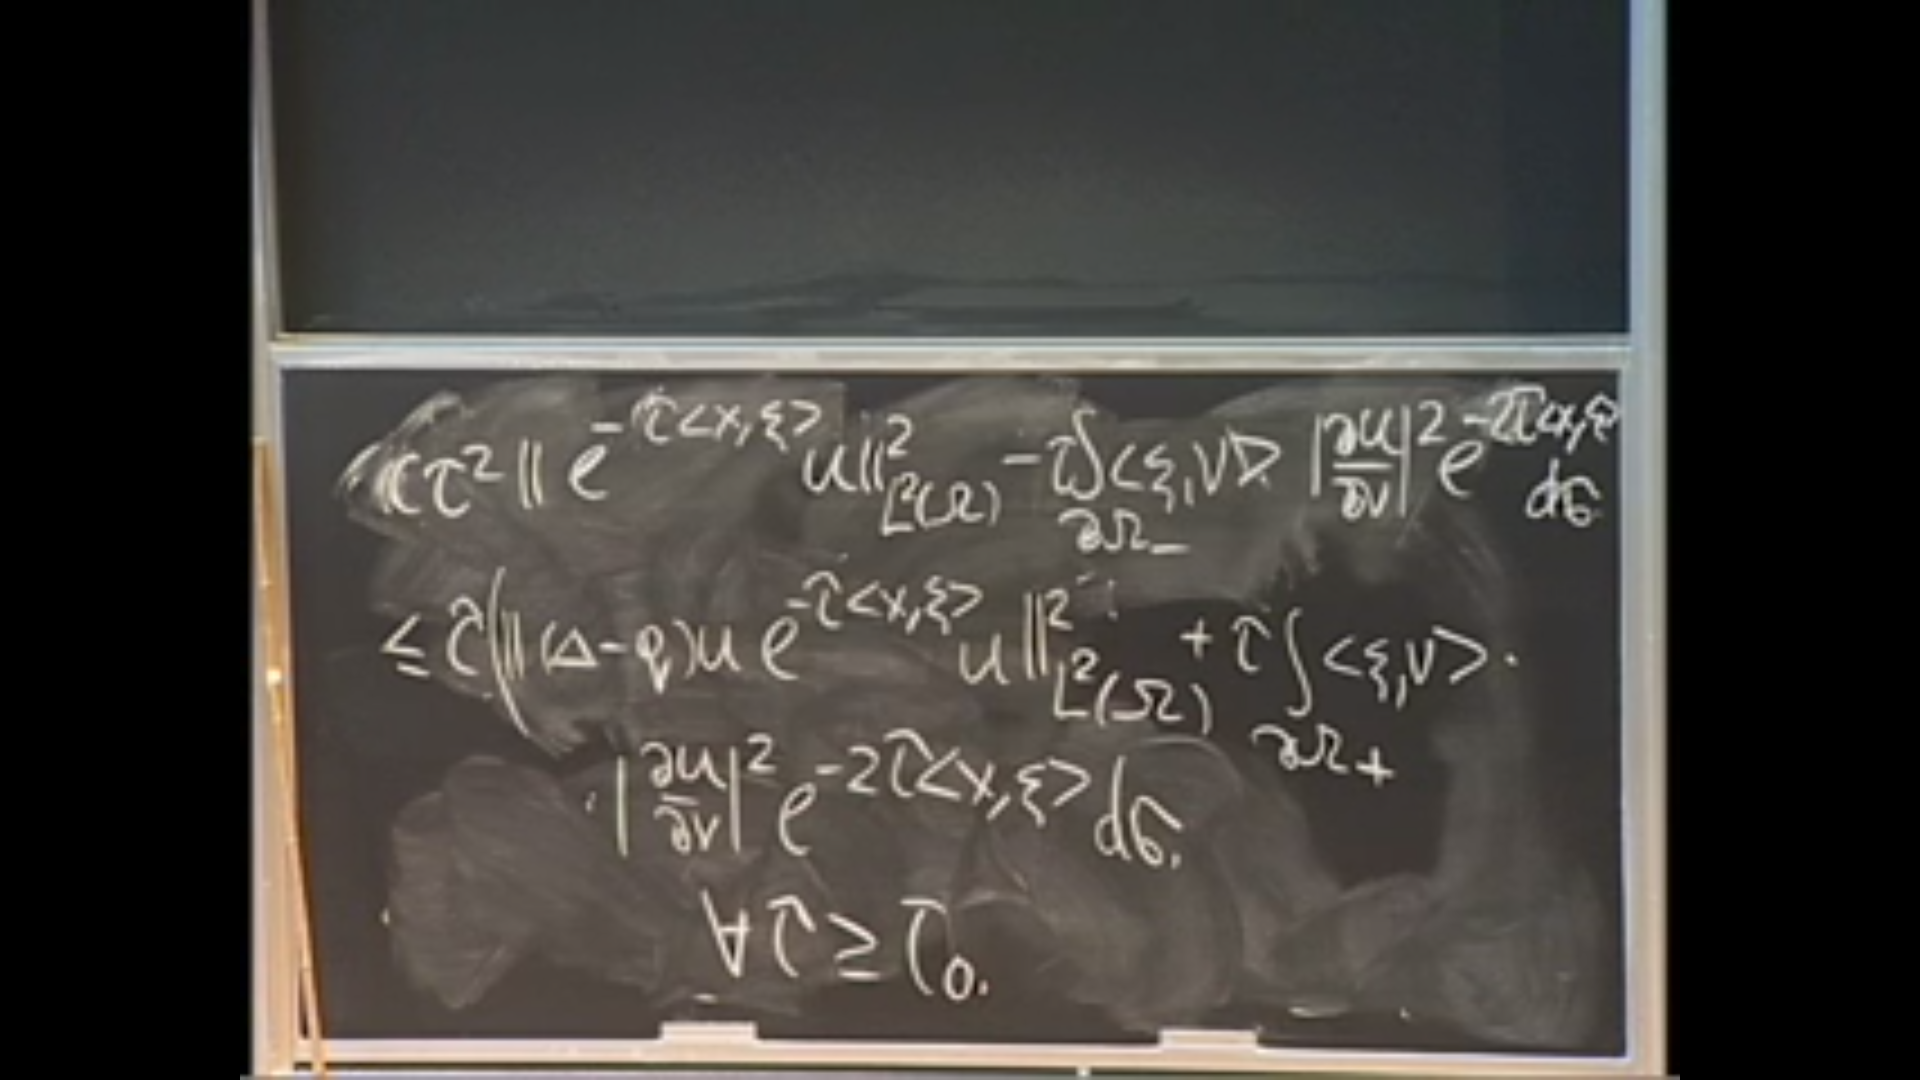 Cτ²‖e^{-τ<x,ξ>}u‖²_{L²(Ω)} - τ∫_{∂Ω_-}<ξ,ν>|∂u/∂ν|²e^{-2τ<x,ξ>}dσ
≤ C(‖(Δ-q)u e^{-τ<x,ξ>}u‖²_{L²(Ω)} + τ∫_{∂Ω_+}<ξ,ν>·
·|∂u/∂ν|²e^{-2τ<x,ξ>}dσ.
∀τ≥τ₀.